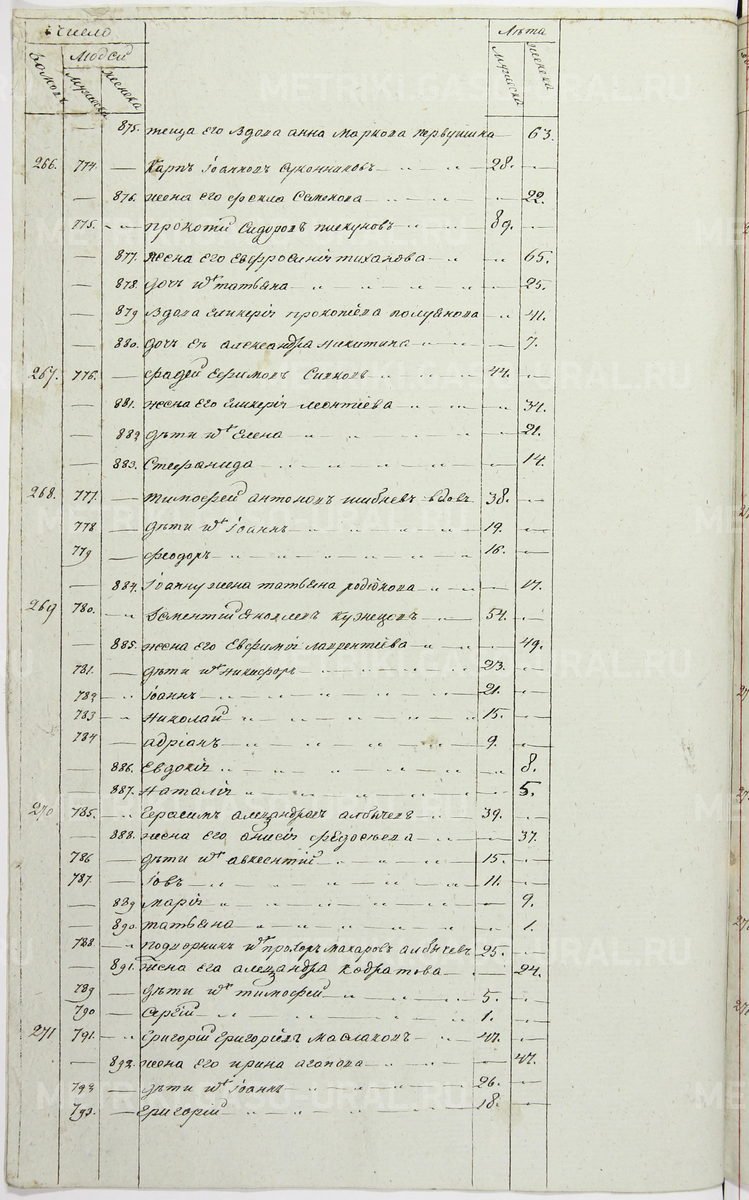 Число
Людей
Лѣта
Домовъ Мужеска Женска Мужеска Женска
875. теща его вдова анна Маркова Первушина 63.
266. 774. Карпъ Іоанновъ Суконниковъ 28.
876. жена его фекла Семенова 22.
775. прокопий Сидоровъ пискуновъ 89.
877. Жена его Евфросиниі тиханова 65.
878. дочь их татьяна 25.
879 вдова гликериі прокопіева полуянова 41.
880. дочь еѣ александра никитина 7.
267. 776. фадей Ефимовъ Сивковъ 44.
881. жена его гликериі леонтіева 34.
882 дѣти их Елена 21.
883. Стефанида 14.
268. 777. тимофей антоновъ шибневъ вдовъ 38.
778 дѣти их Іоаннъ 19.
779 феодоръ 16.
884. Іоанну жена татьяна родіонова 17.
269 780. Дементий Яковлевъ Кузнецовъ 54.
885. жена его Евфимиі лаврентіева 49.
781. дѣти их никифоръ 23.
782 Іоаннъ 21.
783 Николай 15.
784 адріанъ 9.
886. Евдокиі 8.
887. Наталиі 5.
270 785. Герасимъ александровъ албычевъ 39.
888. жена его анисиі федосѣева 37.
786 дѣти их авксентий 15.
787. Іовъ 11.
889 мариі 9.
890. татьяна 1.
788 подворникъ их прохоръ Макаровъ албычевъ 25.
891. жена его александра Кодратова 24.
789 дѣти их тимофей 5.
790 Сергий 1.
271 791. Григорий Григоріевъ маслаковъ 47.
892. жена его ирина агапова 47.
792 дѣти их Іоаннъ 26.
793. Григорий 18.
METRIKI.GASO-URAL.RU